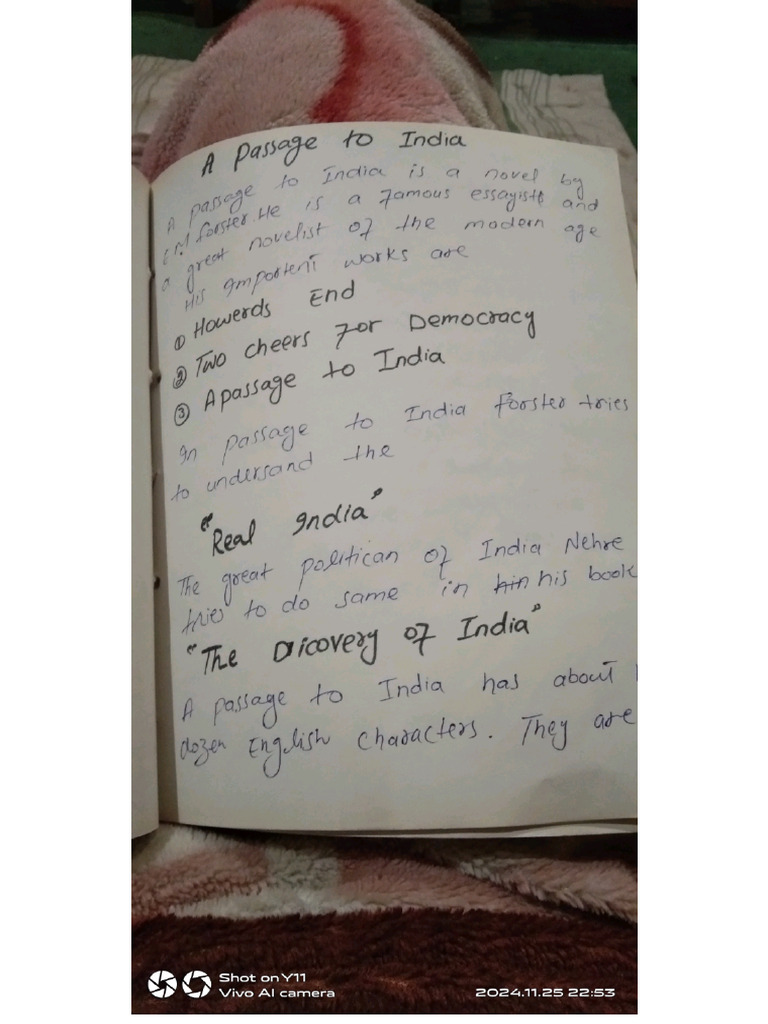 A Passage to India
A passage to India is a novel by
E.M forster. He is a famous essayist and
a great novelist of the modern age
His importent works are
① Howerds End
② Two cheers for Democracy
③ A passage to India
In passage to India forster tries
to undersand the
"Real India"
The great politican of India Nehre
tries to do same in his book
"The Dicovery of India"
A passage to India has about
dozen English characters. They are
Shot on Y11
Vivo AI camera
2024.11.25 22:53